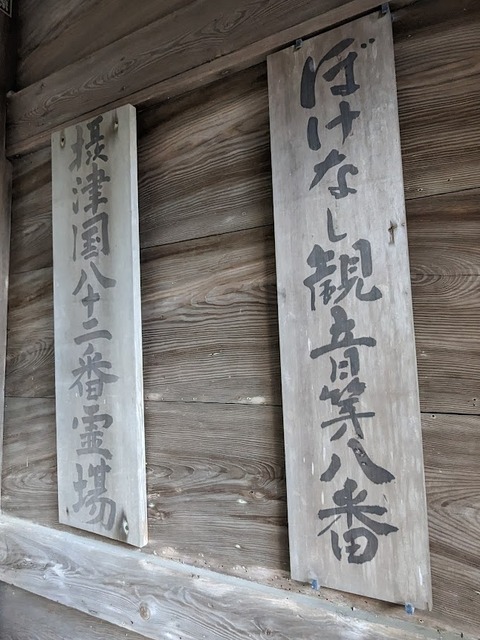 ぼけなし観音第八番
摂津国八十二番霊場